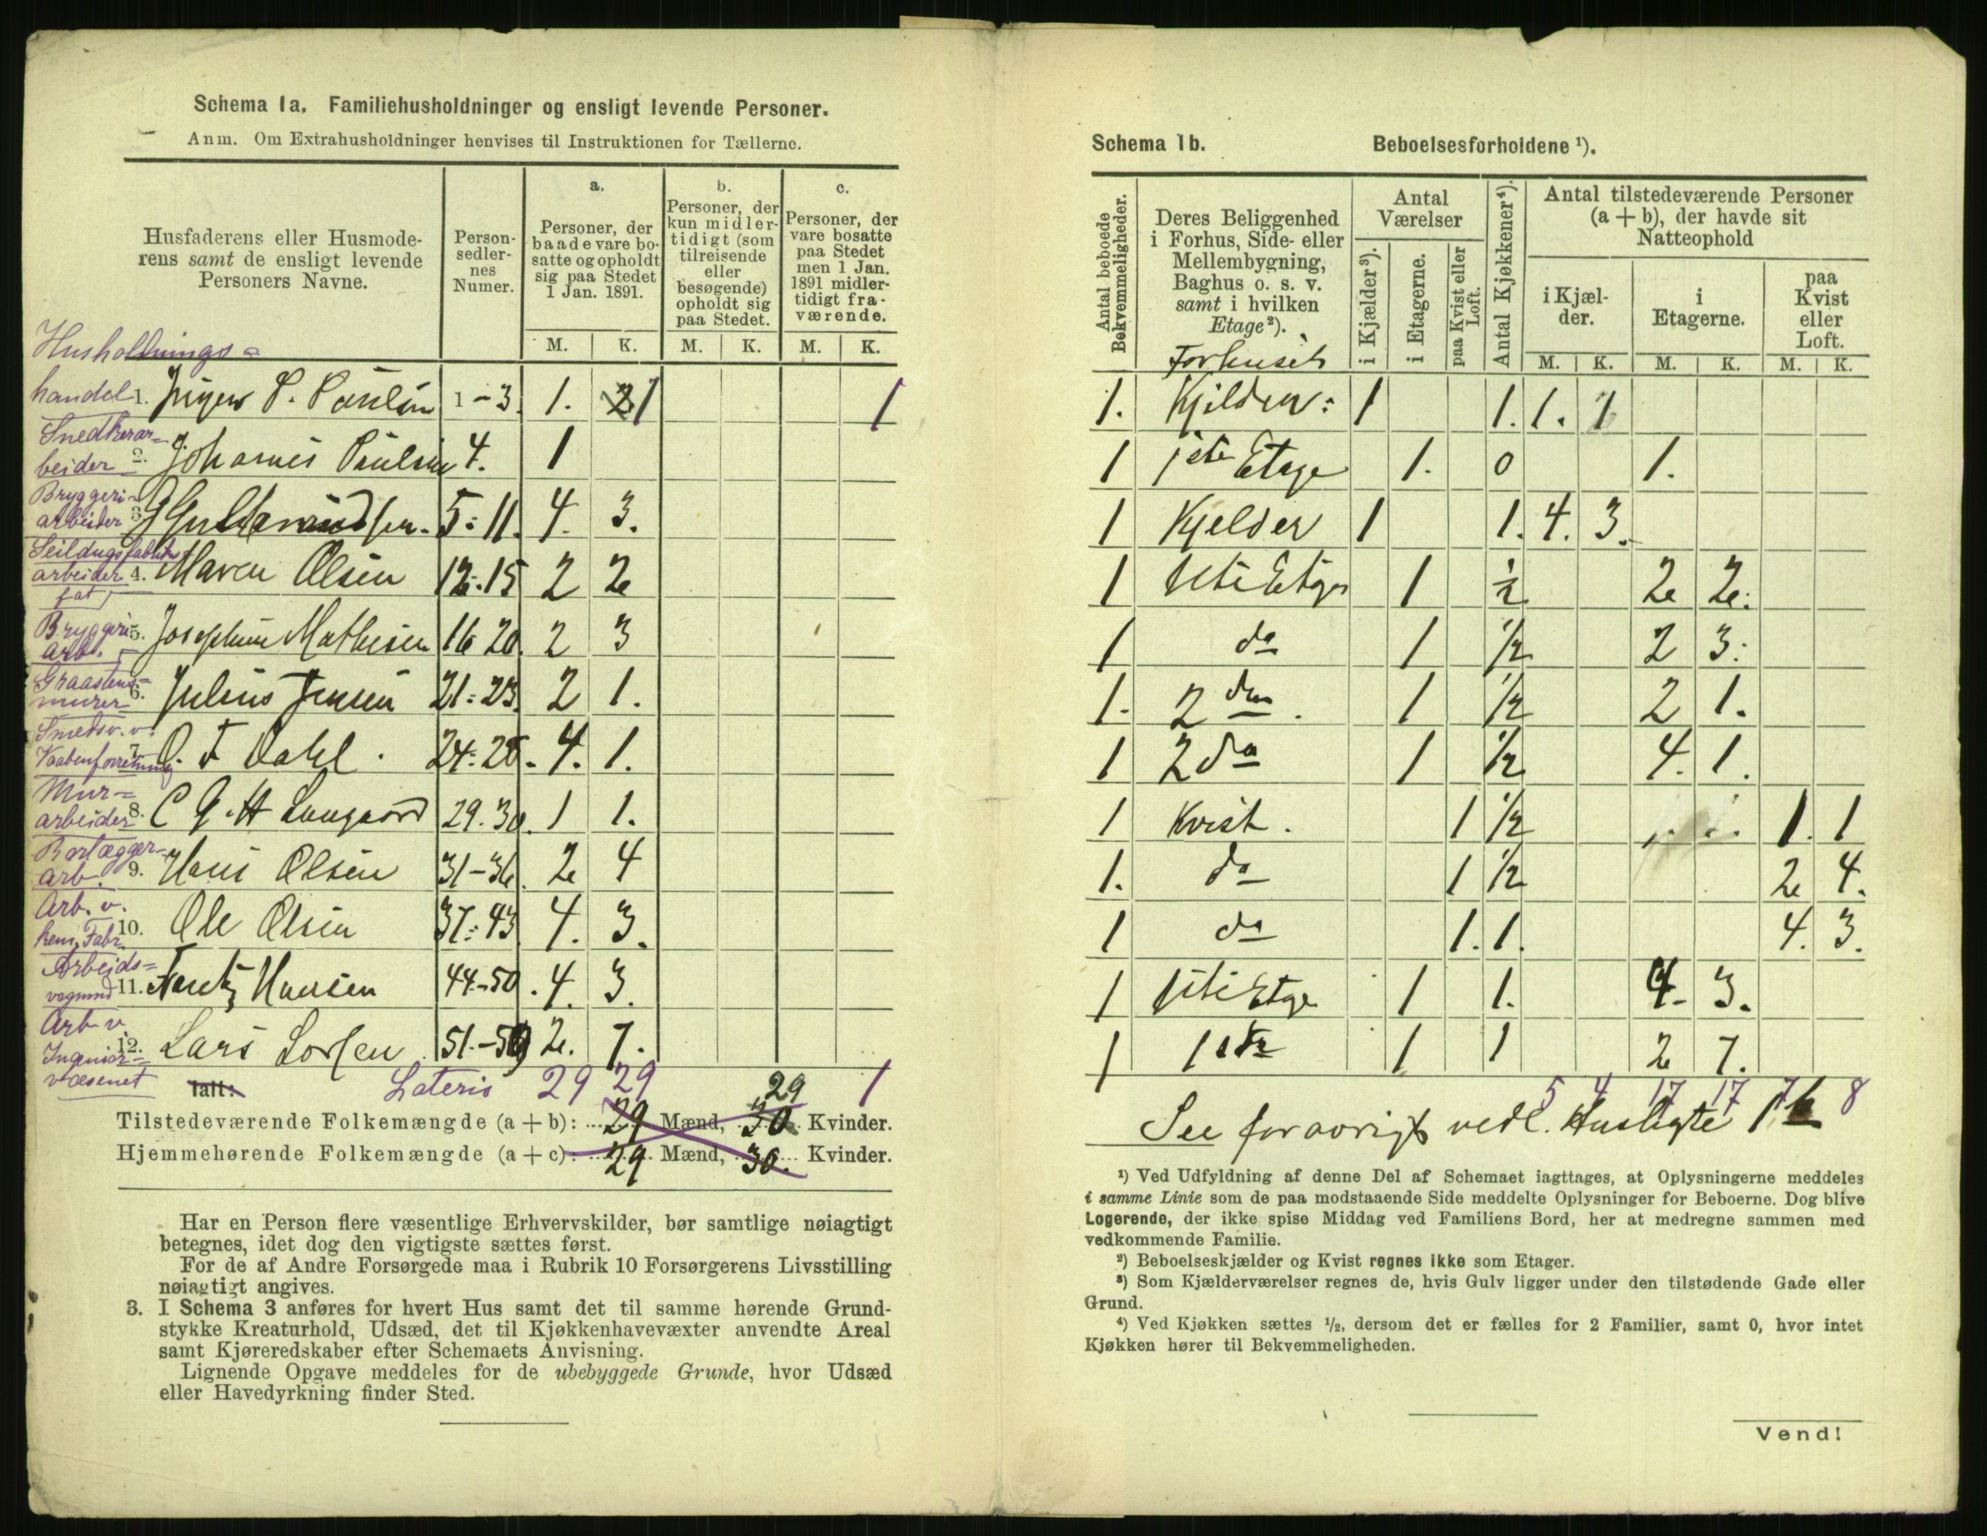 Schema 1a. Familiehusholdninger og ensligt levende Personer.
Anm. Om Extrahusholdninger henvises til Instruktionen for Tællerne.
Husfaderens eller Husmode-
rens samt de ensligt levende
Personers Navne.
Person-
sedler-
nes
Numer.
a.
Personer, der
baade vare bo-
satte og opholdt
sig paa Stedet
1 Jan. 1891.
b.
Personer, der
kun midler-
tidigt (som
tilreisende
eller
besøgende)
opholdt sig
paa Stedet.
c.
Personer, der
vare bosatte
paa Stedet
men 1 Jan.
1891 midler-
tidigt fra-
værende.
M. K. M. K. M. K.
Husholdnings-
handel 1. P. Paulsen 1-3. 1. 1 1
Snedkerar-
beider 2. Johannes Paulsen 4. 1
Bryggeri-
arbeider 3. 5-11. 4. 3.
Seildugsfabrik
arbeider 4. Maren Olsen 12-15 2 2
fat
Bryggeri
arb. 5. Josephine Mathisen 16 20. 2 3
Graastens-
murer 6. Julius Jensen 21-23. 2 1.
Smedsv. v.
Vaabenforretning 7. O. F Dahl. 24-28. 4. 1.
Mur-
arbeider 8. C G. H 29.30. 1 1.
arb. 9. Hans Olsen 31-36. 2 4
Arb. v.
kem. Fabr. 10. Ole Olsen 37-43. 4. 3.
Arbeids-
vognmd 11. Hansen 44-50. 4. 3.
Arb. v.
Ingeniør- 12. Lars 51-59 2. 7.
væsenet Ialt: Lateris 29 29 1
29
Tilstedeværende Folkemængde (a + b): 29 Mænd, 30 Kvinder.
Hjemmehørende Folkemængde (a + c): 29 Mænd, 30. Kvinder.
Har en Person flere væsentlige Erhvervskilder, bør samtlige nøiagtigt
betegnes, idet dog den vigtigste sættes først.
For de af Andre Forsørgede maa i Rubrik 10 Forsørgerens Livsstilling
nøiagtigt angives.
3. I Schema 3 anføres for hvert Hus samt det til samme hørende Grund-
stykke Kreaturhold, Udsæd, det til Kjøkkenhavevæxter anvendte Areal
samt Kjøreredskaber efter Schemaets Anvisning.
Lignende Opgave meddeles for de ubebyggede Grunde, hvor Udsæd
eller Havedyrkning finder Sted.
Schema 1b. Beboelsesforholdene ¹).
Antal beboede
Bekvemmeligheder.
Deres Beliggenhed
i Forhus, Side- eller
Mellembygning,
Baghus o. s. v.
samt i hvilken
Etage ²).
Antal
Værelser
i Kjælder ³).
i Etagerne.
paa Kvist eller
Loft.
Antal Kjøkkener ⁴).
Antal tilstedeværende Personer
(a + b), der havde sit
Natteophold
i Kjæl-
der.
i
Etagerne.
paa
Kvist
eller
Loft.
M. K. M. K. M. K.
Forhuset
1. Kjelder: 1 1. 1. 1
1 1ste Etage 1. 0 1.
1 Kjelder 1 1. 4. 3.
1 1ste Etage 1 ½ 2 2.
1 do 1 ½ 2 3.
1. 2 den. 1 ½ 2 1.
1 2 do 1 ½ 4. 1.
1 Kvist. 1 ½ 1. 1
1. do 1 ½ 2 4.
1 do 1. 1. 4. 3.
1 1ste Etage 1 1. 4. 3.
1 1ste 1 1 2 7.
5 4 17 17 7 8
See forøvrigt vedl. Husliste 1 b
¹) Ved Udfyldning af denne Del af Schemaet iagttages, at Oplysningerne meddeles
i samme Linie som de paa modstaaende Side meddelte Oplysninger for Beboerne. Dog blive
Logerende, der ikke spise Middag ved Familiens Bord, her at medregne sammen med
vedkommende Familie.
²) Beboelseskjælder og Kvist regnes ikke som Etager.
³) Som Kjælderværelser regnes de, hvis Gulv ligger under den tilstødende Gade eller
Grund.
⁴) Ved Kjøkken sættes ½, dersom det er fælles for 2 Familier, samt 0, hvor intet
Kjøkken hører til Bekvemmeligheden.
Vend!